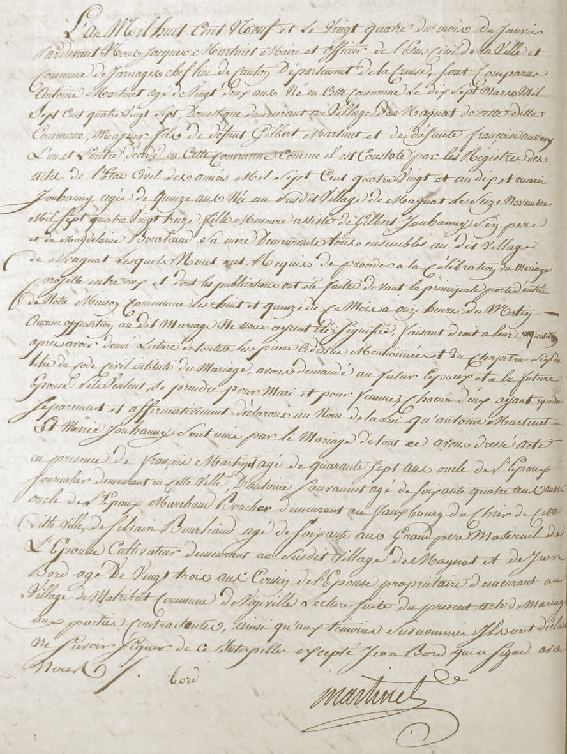 L'an Mil huit Cent Neuf et le Vingt quatre du mois de Janvier
Pardevant Nous Jacques Martinet Maire et officier de l'état Civil de la Ville et
Commune de Jarnages chef lieu de Canton, Département de la Creuse, sont Comparus
Antoine Martinet agé de Vingt deux ans Né en Cette Commune le dix Sept Mars Mil
Sept Cent quatre Vingt Sept, Domestique demeurant au Village de Maguat de cette ditte
Commune, Majeur fils de défunt Gilbert Martinet et de défunte françoise
L'un et L'autre décédé en Cette Commune Comme il est Constaté par les Registres des
actes de l'état Civil des années Mil Sept Cent quatre Vingt et an dix et marie
Joubanny agée de quinze ans Née au Susdit Village de Maguat le Seize Novembre
Mil Sept quatre Vingt treize fille Mineure assistée de Gilbert Joubanny Son père
et de Magdelaine Bourliaud Sa mère Demeurants tous ensembles au dit Village
de Maguat Lesquels Nous ont Requis de proceder à la Célébration du Mariage
projetté entre eux et dont les publications ont été faites devant la principale porte d'entrée
de Notre Maison Commune les huit et quinze de ce Mois à onz heures du Matin
Aucune opposition au dit Mariage Ne nous ayant été Signifiée, faisant droit à leur requisition
après avoir donné Lecture de toutes les pièces Cidessus Mentionnées et du Chapitre Six du
titre du Code Civil intitulé du Mariage, avons demandé au futur Epoux et à la future
Epouse S'ils Veulent Se prendre pour Mari et pour femme, Chacun d'eux ayant répondu
Séparement et affirmativement déclarons au Nom de la Loi qu'antoine Martinet
Et Marie Joubanny Sont unis par le Mariage de tout ce avons dressé Acte
en presence de françois Martinet agé de quarante Sept ans oncle de l'Epoux
Journalier demeurant en cette Ville D'Antoine agé de Soixante quatre ans aussi
oncle de l'Epoux Marchand Boucher demeurant au fauxbourg du Cheix de cette
ditte Ville, de Silvain Bourliaud agé de Soixante ans Grand pere Maternel de
L'Epouse Cultivateur demeurant au Susdit Village de Maguat et de Jean
Bord agé de Vingt trois ans Cousin de l'Epouse propriétaire demeurant au
Village de Commune de Vigeville Lecture faite du present acte de Mariage
aux parties Contractantes, ainsi qu'aux témoins Susnommés Ils ont déclaré
Ne Savoir Signer de ce Interpellés excepté Jean Bord qui a Signé avec
Nous
bord
martinet